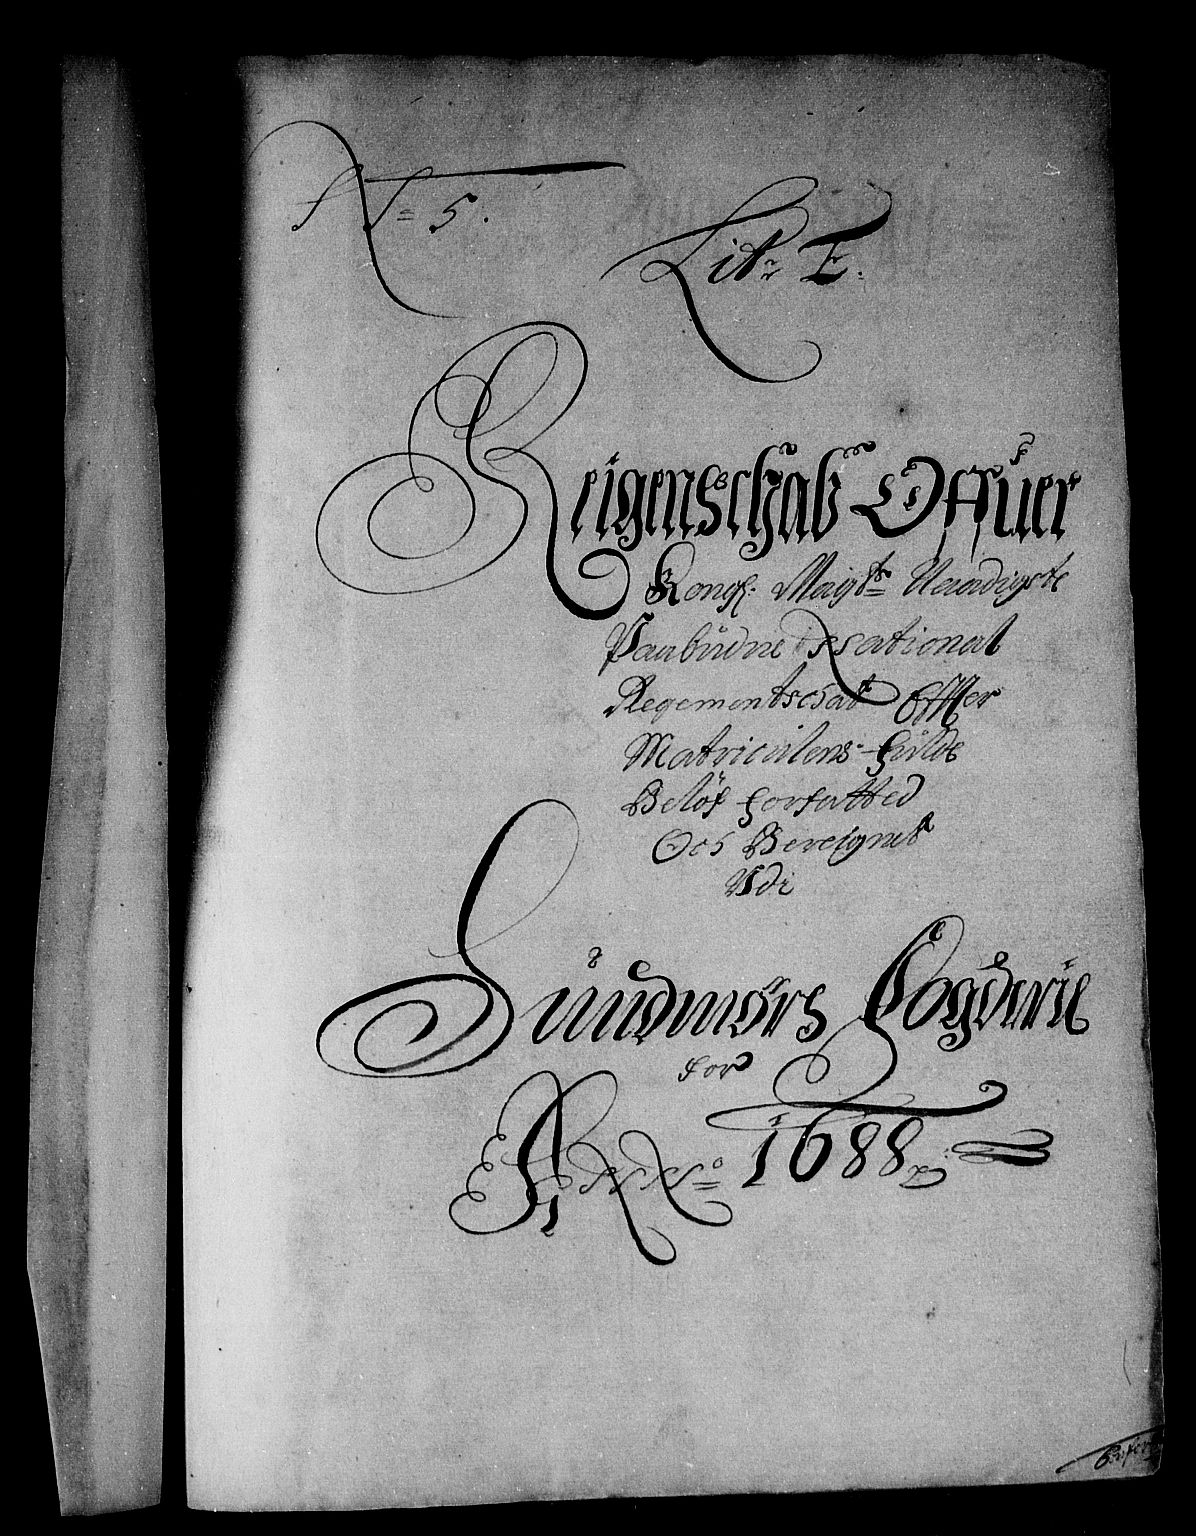 N= 5.
Litr E.
Reigensschab Offuer
Kongl: Mayts Naadigste
Paabudne Rationat
Regements Offuer
Matriculens fulde
Beløf forfatted
Och Bereignet
Udi
Sundmørs Fogderie
for
Anno 1688